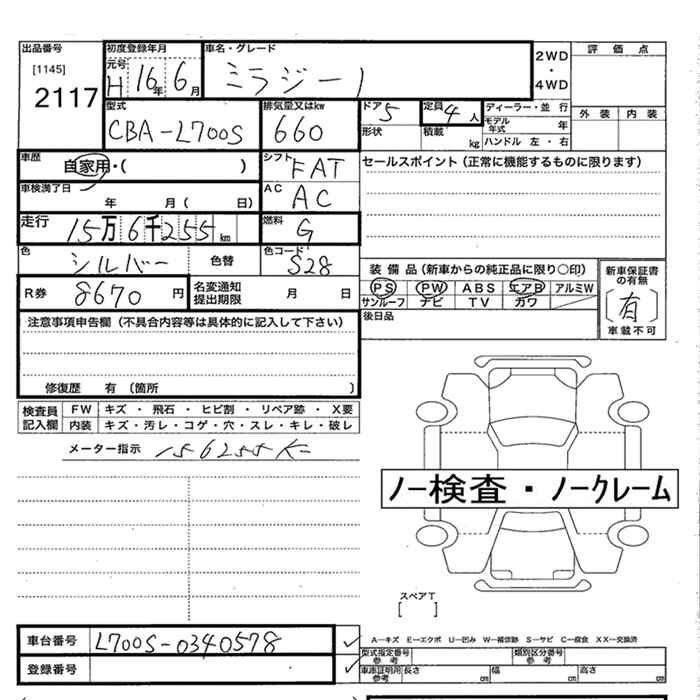 出品番号 初度登録年月 車名・グレード 2WD ・ 4WD 評価点
[1145] 元号 H 16年 6月 ミラジーノ
2117
型式 排気量又はkw ドア 5 定員 4人 ディーラー・並行 外装 内装
CBA-L700S 660 形状 積載 kg モデル年式 年
ハンドル 左・右
車歴 自家用・( ) シフト FAT セールスポイント(正常に機能するものに限ります)
車検満了日 年 月( 日) AC AC
走行 15万6千255km 燃料 G
色 シルバー 色替 色コード S28
装備品(新車からの純正品に限り○印) 新車保証書の有無
R券 8670円 名変通知提出期限 月 日 PS PW ABS エアB アルミW [有]
サンルーフ ナビ TV カワ 車載不可
注意事項申告欄(不具合内容等は具体的に記入して下さい) 後日品
修復歴 有 (箇所 )
検査員記入欄 FW キズ・飛石・ヒビ割・リペア跡・X要
内装 キズ・汚レ・コゲ・穴・スレ・キレ・破レ
メーター指示 156255K
ノー検査・ノークレーム
スペアT
[ ]
車台番号 L700S-0340578 A―キズ E―エクボ U―凹み W―補修跡 S―サビ C―腐食 XX―交換済
型式指定番号 参考 類別区分番号 参考
登録番号 車庫証明用参考 長さ cm 幅 cm 高さ cm